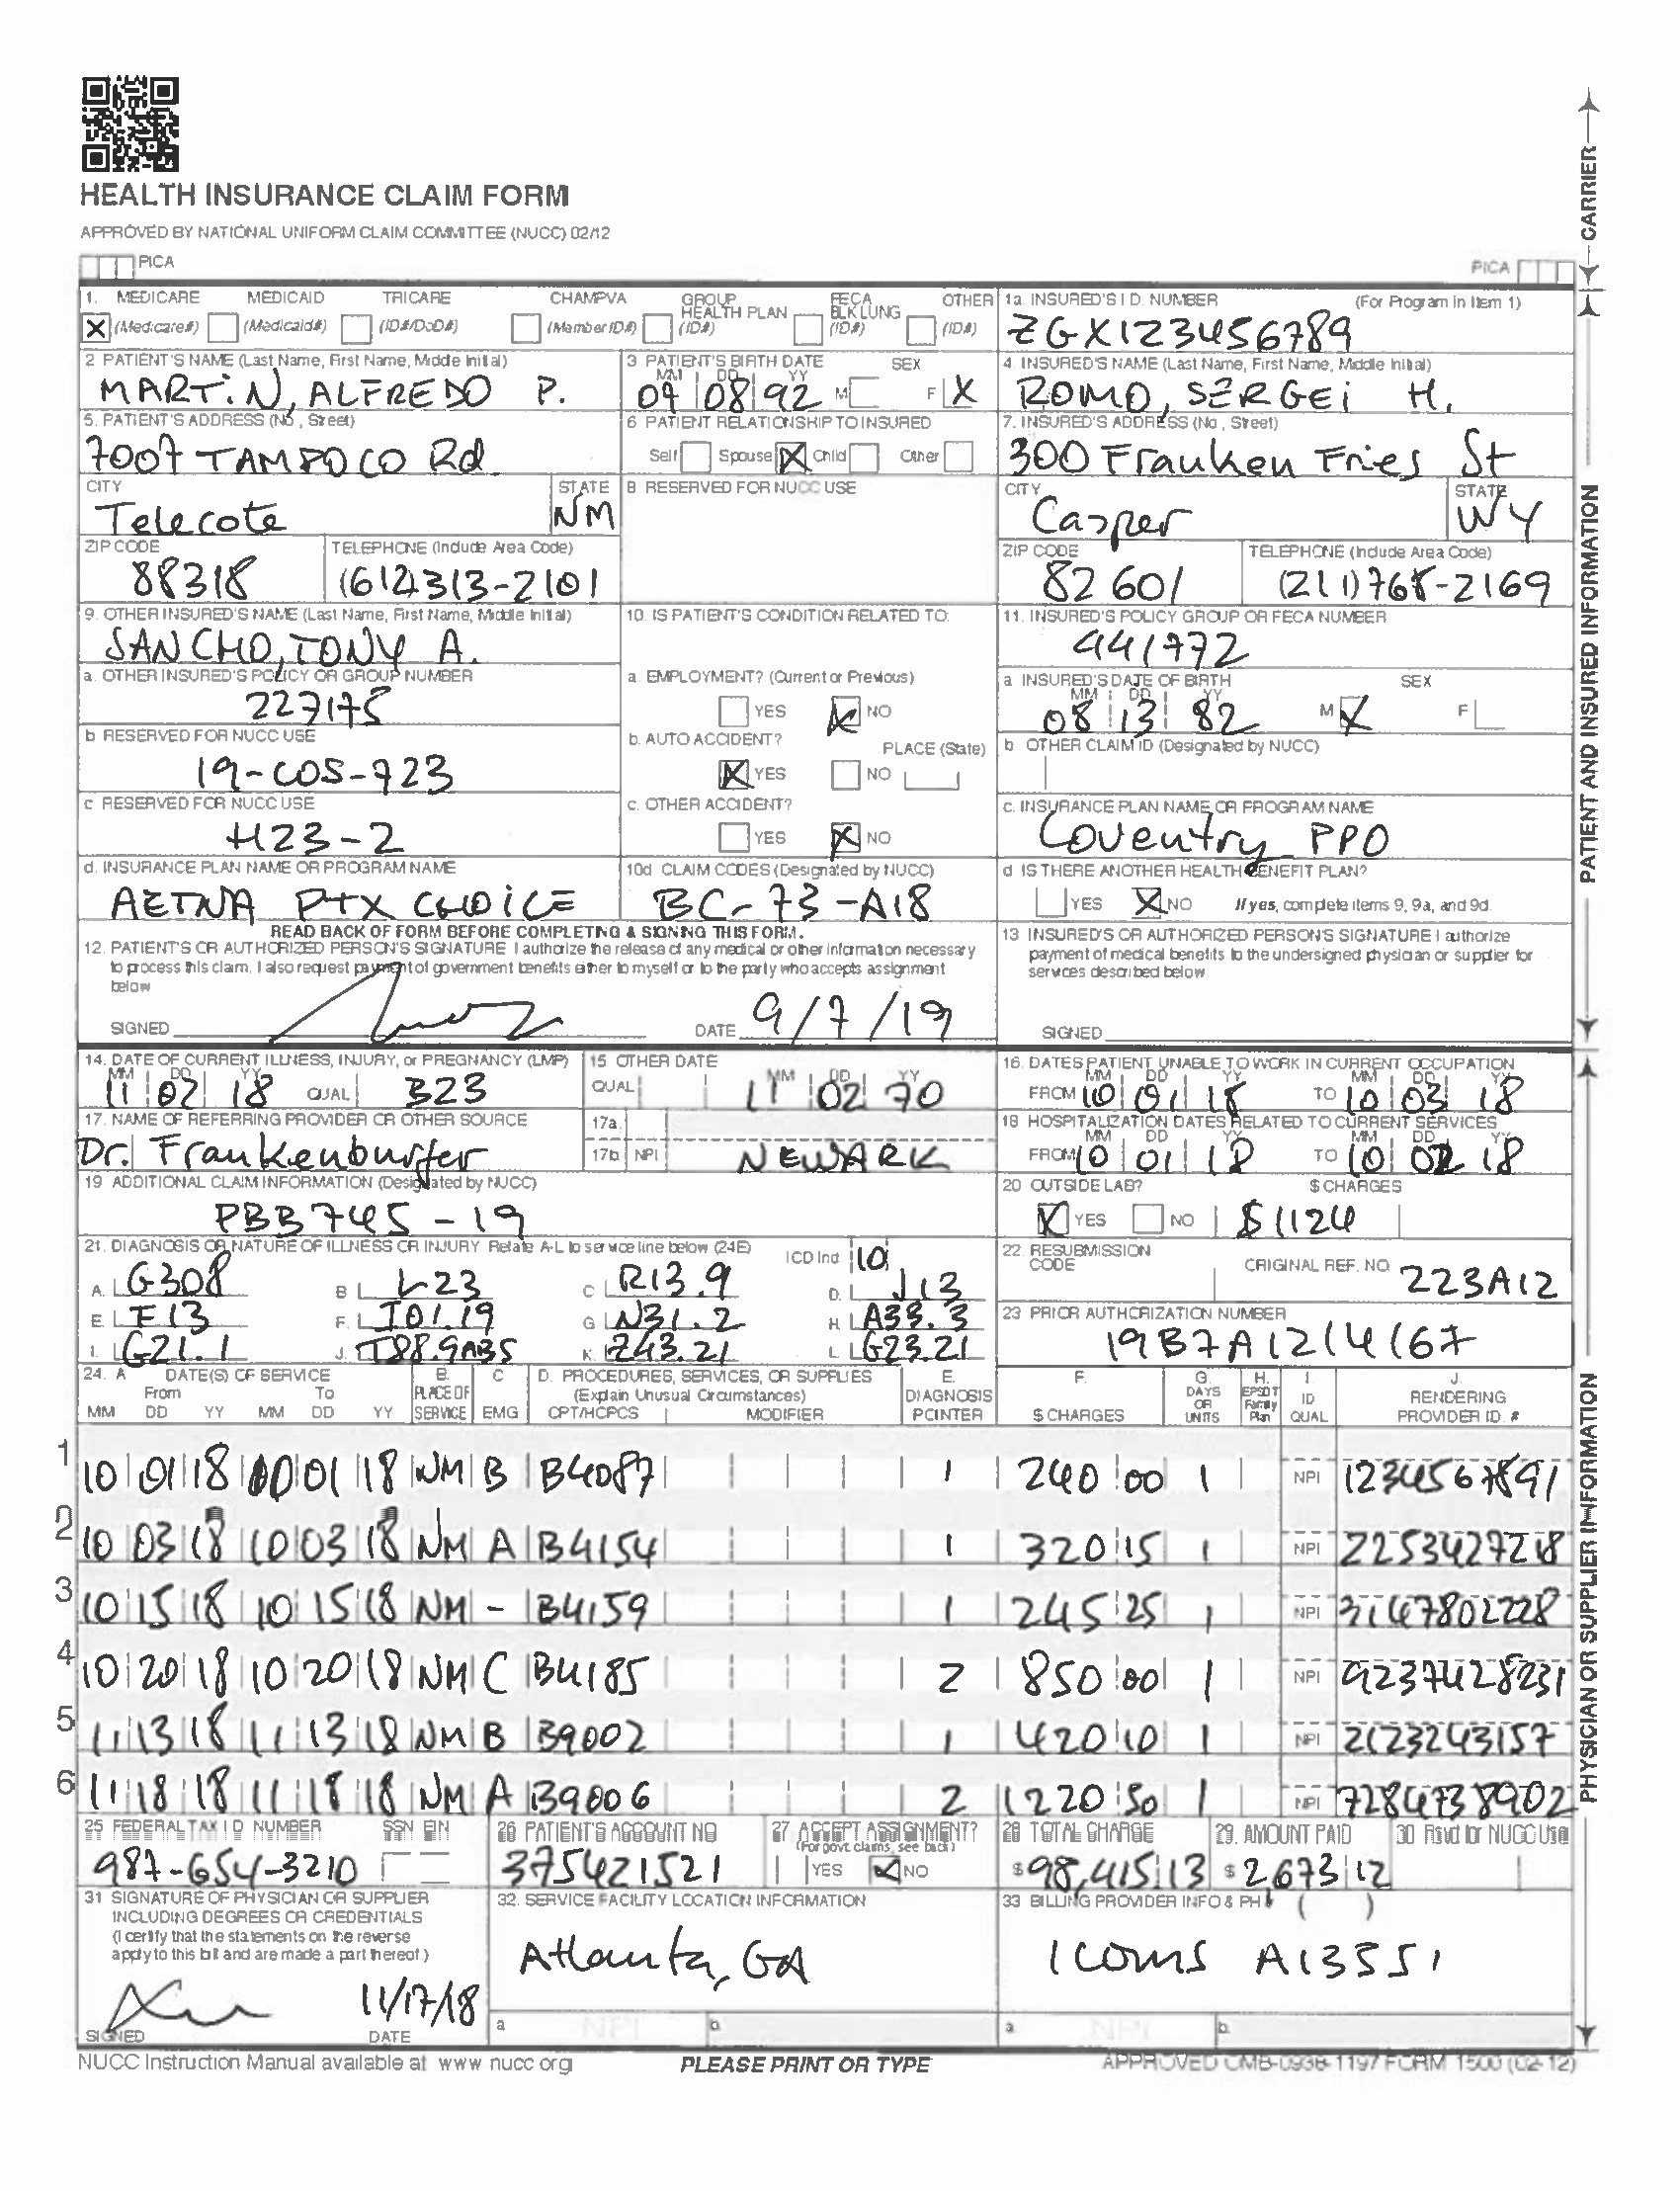 HEALTH INSURANCE CLAIM FORM
APPROVED BY NATIONAL UNIFORM CLAIM COMMITTEE (NUCC) 02/12
PICA PICA
CARRIER
1. MEDICARE MEDICAID TRICARE CHAMPVA GROUP HEALTH PLAN FECA BLK LUNG OTHER
X (Medicare#) (Medicaid#) (ID#/DoD#) (Member ID#) (ID#) (ID#) (ID#)
1a. INSURED'S I.D. NUMBER (For Program in Item 1)
ZGX123456789
2 PATIENT'S NAME (Last Name, First Name, Middle Initial)
MARTiN, ALFREDO P.
3 PATIENT'S BIRTH DATE SEX
MM DD YY
07 08 92 M F X
4. INSURED'S NAME (Last Name, First Name, Middle Initial)
ROMO, SERGEi H.
5. PATIENT'S ADDRESS (No, Street)
7007 TAMPOCO Rd
6 PATIENT RELATIONSHIP TO INSURED
Self Spouse X Child Other
7. INSURED'S ADDRESS (No, Street)
300 Franken Fries St
CITY STATE
Telecote NM
8 RESERVED FOR NUCC USE
CITY STATE
Casper WY
ZIP CODE TELEPHONE (Include Area Code)
88318 (612)313-2101
ZIP CODE TELEPHONE (Include Area Code)
82601 (211)768-2169
9. OTHER INSURED'S NAME (Last Name, First Name, Middle Initial)
SANCHO, TONY A.
10. IS PATIENT'S CONDITION RELATED TO:
11. INSURED'S POLICY GROUP OR FECA NUMBER
441772
a. OTHER INSURED'S POLICY OR GROUP NUMBER
227175
a. EMPLOYMENT? (Current or Previous)
YES X NO
a INSURED'S DATE OF BIRTH SEX
MM DD YY
08 13 82 M X F
b RESERVED FOR NUCC USE
19-COS-723
b. AUTO ACCIDENT? PLACE (State)
X YES NO
b OTHER CLAIM ID (Designated by NUCC)
c RESERVED FOR NUCC USE
H23-2
c. OTHER ACCIDENT?
YES X NO
c. INSURANCE PLAN NAME OR PROGRAM NAME
Coventry PPO
d. INSURANCE PLAN NAME OR PROGRAM NAME
AETNA PTX CHOiCE
10d CLAIM CODES (Designated by NUCC)
BC-73-A18
d IS THERE ANOTHER HEALTH BENEFIT PLAN?
YES X NO If yes, complete items 9, 9a, and 9d.
PATIENT AND INSURED INFORMATION
READ BACK OF FORM BEFORE COMPLETING & SIGNING THIS FORM.
12. PATIENT'S OR AUTHORIZED PERSON'S SIGNATURE I authorize the release of any medical or other information necessary
to process this claim. I also request payment of government benefits either to myself or to the party who accepts assignment
below
SIGNED DATE 9/7/19
13 INSURED'S OR AUTHORIZED PERSON'S SIGNATURE I authorize
payment of medical benefits to the undersigned physician or supplier for
services described below
SIGNED
14. DATE OF CURRENT ILLNESS, INJURY, or PREGNANCY (LMP)
MM DD YY
11 02 18 QUAL B23
15 OTHER DATE
QUAL MM DD YY
11 02 70
16. DATES PATIENT UNABLE TO WORK IN CURRENT OCCUPATION
MM DD YY MM DD YY
FROM 10 01 18 TO 10 03 18
17. NAME OF REFERRING PROVIDER OR OTHER SOURCE
Dr. Frankenburger
17a.
17b NPI NEWARK
18 HOSPITALIZATION DATES RELATED TO CURRENT SERVICES
MM DD YY MM DD YY
FROM 10 01 18 TO 10 02 18
19 ADDITIONAL CLAIM INFORMATION (Designated by NUCC)
PBB745-19
20 OUTSIDE LAB? $ CHARGES
X YES NO $1124
21. DIAGNOSIS OR NATURE OF ILLNESS OR INJURY Relate A-L to service line below (24E) ICD Ind 10
A. G308 B L23 C R13.9 D. J13
E. F13 F. J01.19 G N31.2 H. A33.3
I. G21.1 J. T88.9AB5 K. Z43.21 L. G23.21
22. RESUBMISSION CODE ORIGINAL REF. NO.
223A12
23 PRIOR AUTHORIZATION NUMBER
19B7A1214167
24. A DATE(S) OF SERVICE B. C D. PROCEDURES, SERVICES, OR SUPPLIES E. F. G. H. I J.
From To PLACE OF (Explain Unusual Circumstances) DIAGNOSIS DAYS OR EPSDT Family ID RENDERING
MM DD YY MM DD YY SERVICE EMG CPT/HCPCS MODIFIER POINTER $ CHARGES UNITS Plan QUAL PROVIDER ID. #
1 10 01 18 10 01 18 NM B B4087 1 240 00 1 NPI 1234567891
2 10 03 18 10 03 18 NM A B4154 1 320 15 1 NPI 2253427218
3 10 15 18 10 15 18 NM - B4159 1 245 25 1 NPI 3147802228
4 10 20 18 10 20 18 NM C B4185 2 850 00 1 NPI 9237428231
5 11 13 18 11 13 18 NM B B9002 1 420 10 1 NPI 2123243157
6 11 18 18 11 18 18 NM A B9006 2 1220 50 1 NPI 7284738902
25 FEDERAL TAX I D NUMBER SSN EIN
987-654-3210
26 PATIENT'S ACCOUNT NO
375421521
27 ACCEPT ASSIGNMENT?
(For govt. claims, see back)
YES X NO
28 TOTAL CHARGE
$ 98,415 13
29. AMOUNT PAID
$ 2,673 12
30 Rsvd for NUCC Use
31 SIGNATURE OF PHYSICIAN OR SUPPLIER
INCLUDING DEGREES OR CREDENTIALS
(I certify that the statements on the reverse
apply to this bill and are made a part thereof.)
11/17/18
SIGNED DATE
32. SERVICE FACILITY LOCATION INFORMATION
Atlanta, GA
a NPI b.
33 BILLING PROVIDER INFO & PH # ( )
1coms A13551
a. NPI b.
PHYSICIAN OR SUPPLIER INFORMATION
NUCC Instruction Manual available at www nucc org
PLEASE PRINT OR TYPE
APPROVED OMB-0938-1197 FORM 1500 (02-12)